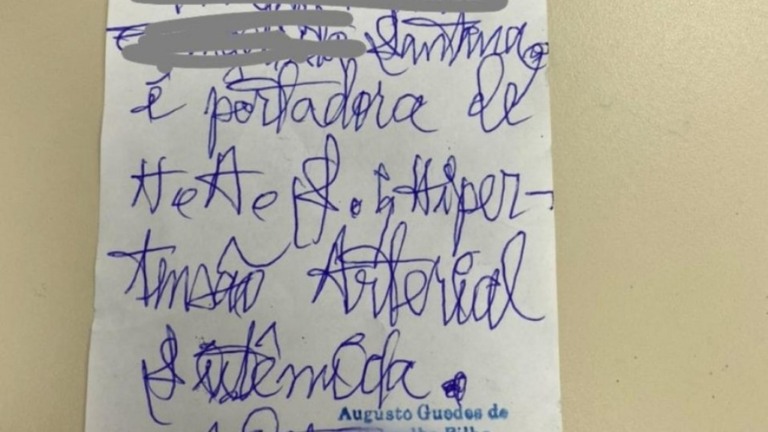 Santana,
é portadora de
H.A.S. : Hiper-
tensão Arterial
Sistêmica.
Augusto Guedes de